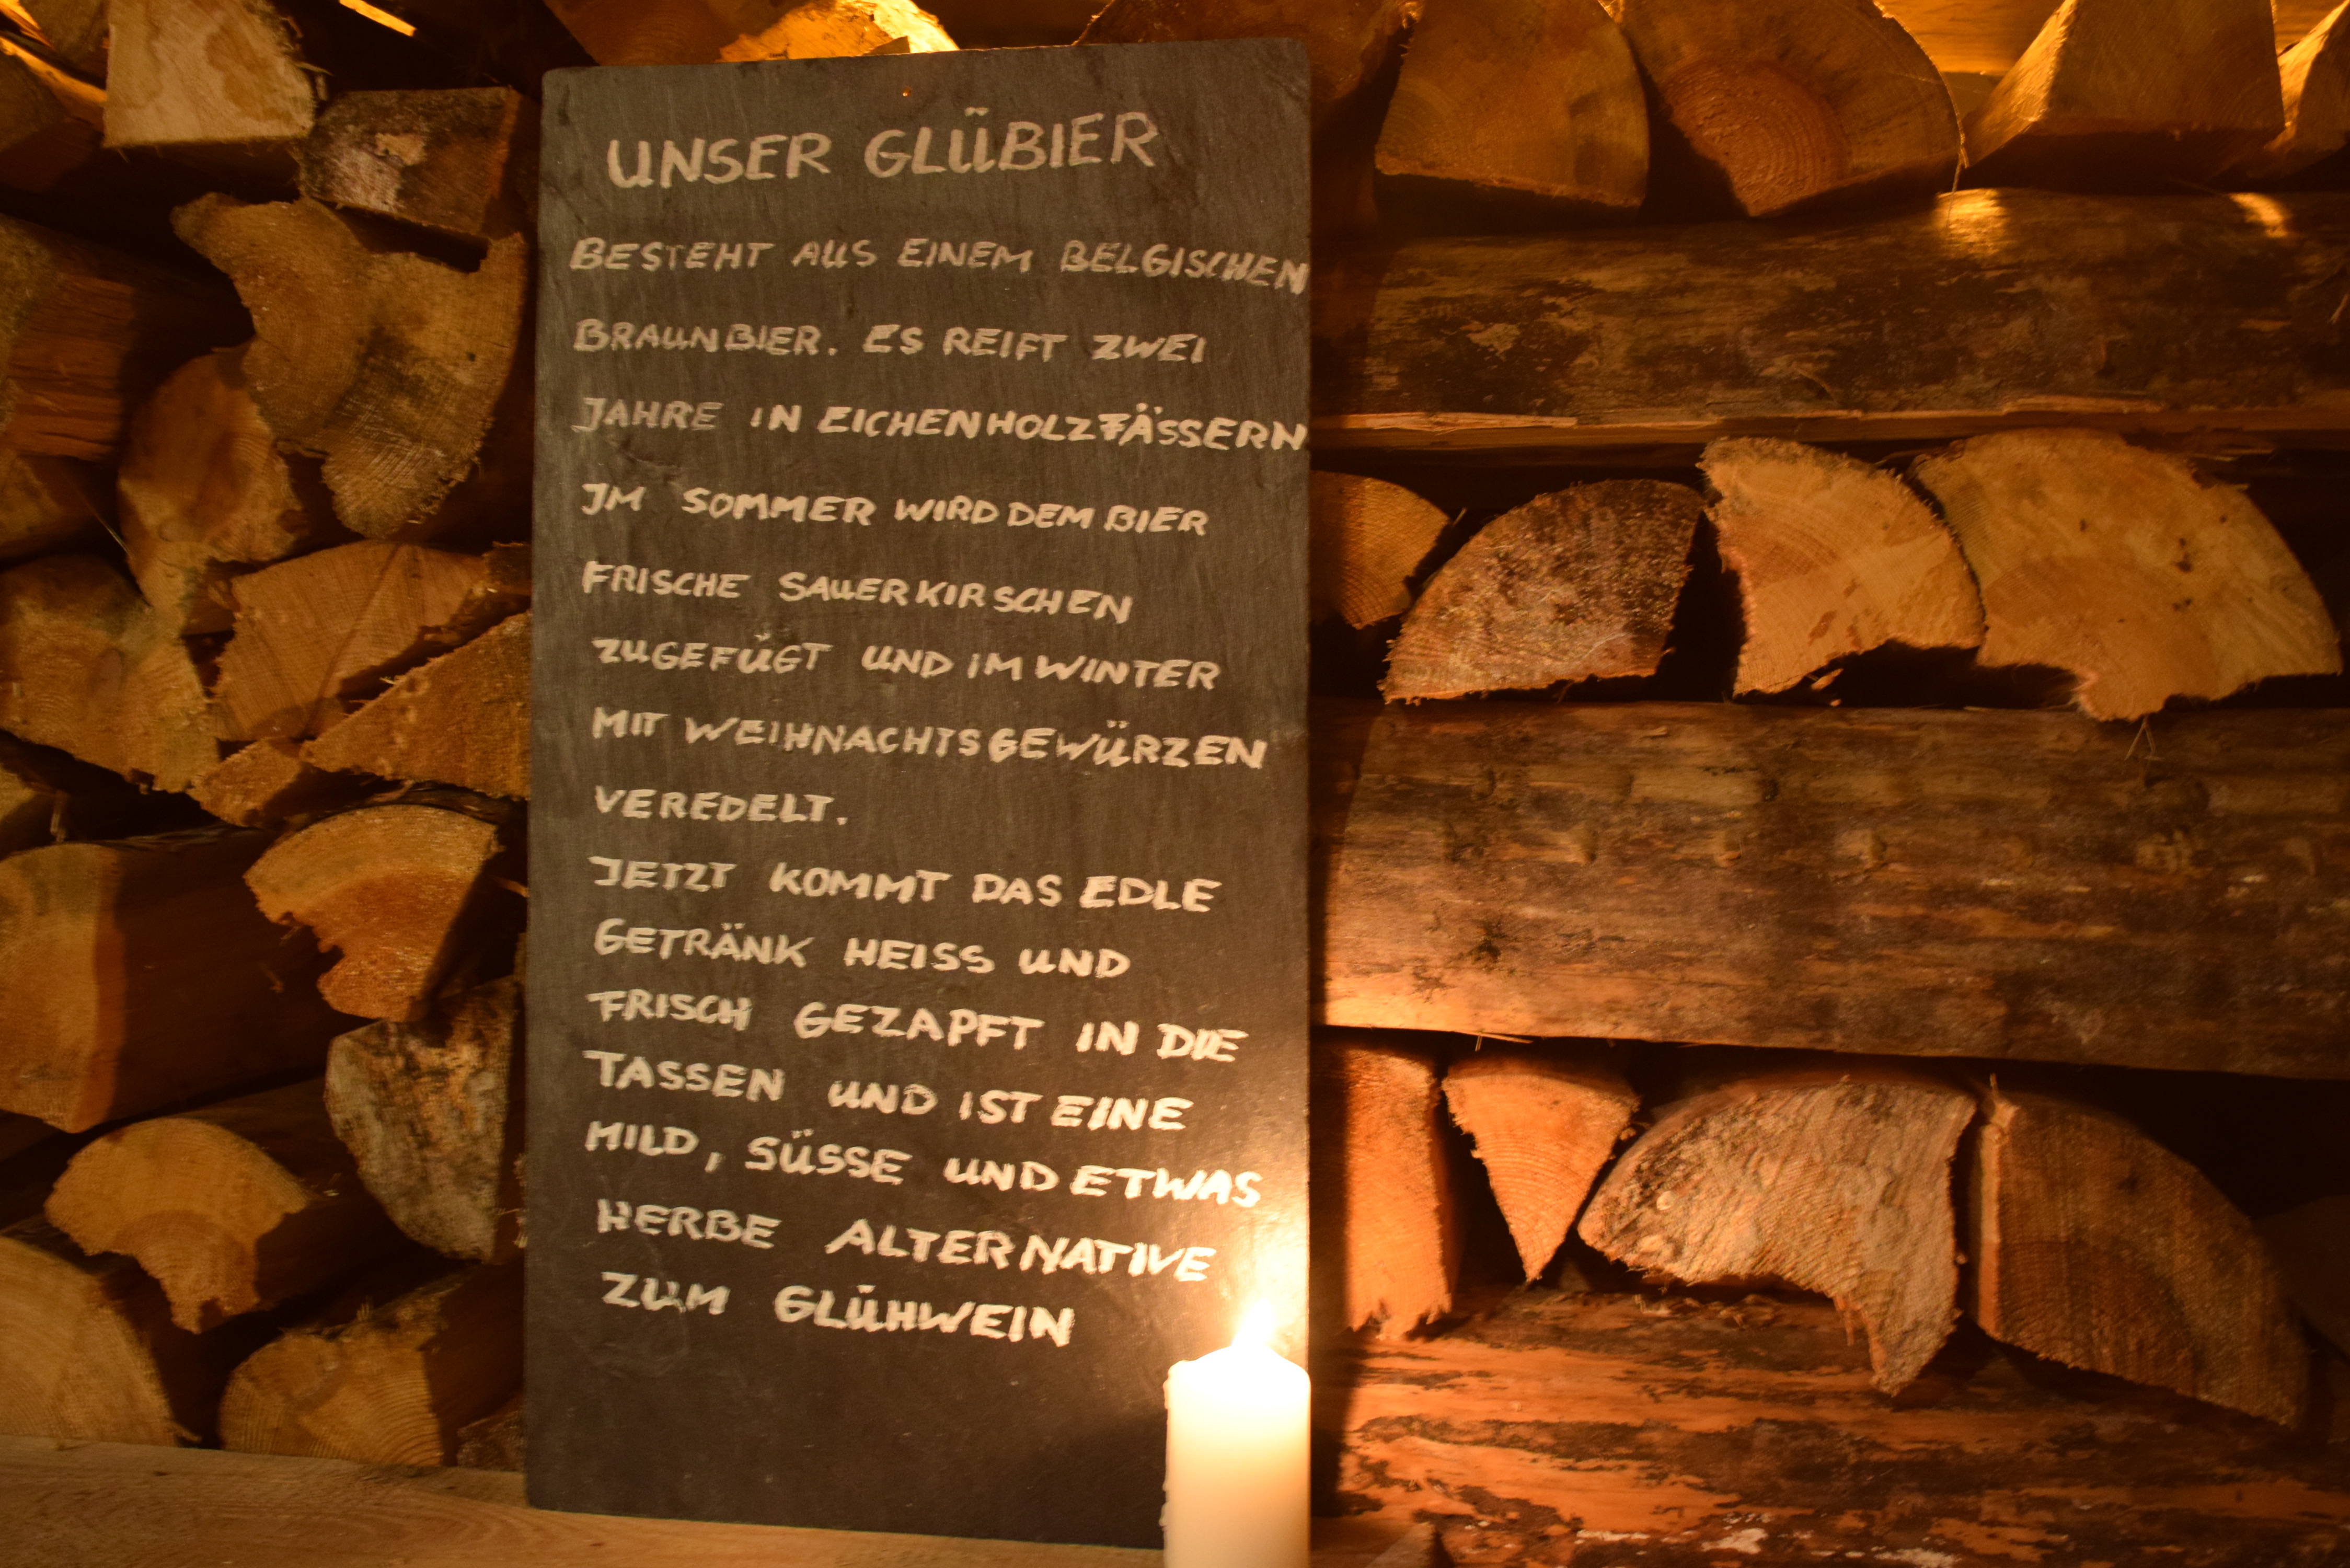 UNSER GLÜBIER
BESTEHT AUS EINEM BELGISCHEN
BRAUNBIER. ES REIFT ZWEI
JAHRE IN EICHENHOLZFÄSSERN
IM SOMMER WIRD DEM BIER
FRISCHE SAUERKIRSCHEN
ZUGEFÜGT UND IM WINTER
MIT WEIHNACHTSGEWÜRZEN
VEREDELT.
JETZT KOMMT DAS EDLE
GETRÄNK HEISS UND
FRISCH GEZAPFT IN DIE
TASSEN UND IST EINE
MILD, SÜSSE UND ETWAS
HERBE ALTERNATIVE
ZUM GLÜHWEIN